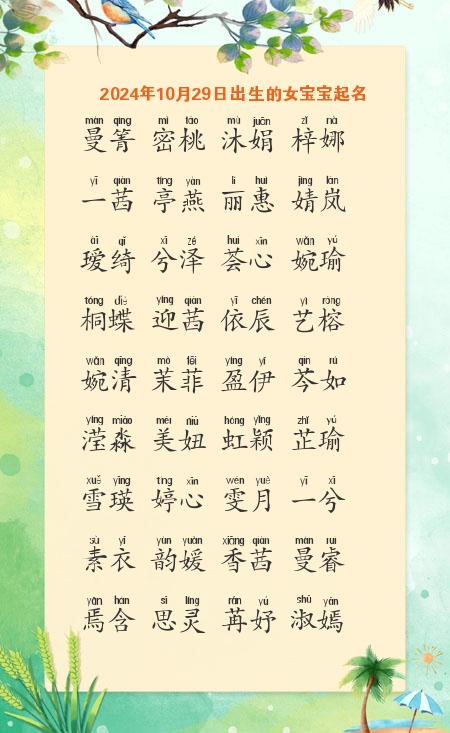 2024年10月29日出生的女宝宝起名
màn qīng mì táo mù juān zǐ nà
曼箐 密桃 沐娟 梓娜
yī qiàn tíng yàn lì huì jìng lán
一茜 亭燕 丽惠 婧岚
ài qǐ xī zé huì xīn wǎn yú
瑷绮 兮泽 荟心 婉瑜
tóng dié yíng qiàn yī chén yì róng
桐蝶 迎茜 依辰 艺榕
wǎn qīng mò fēi yíng yī qín rú
婉清 茉菲 盈伊 芩如
yíng miǎo měi niū hóng yǐng zhǐ yú
滢淼 美妞 虹颖 芷瑜
xuě yīng tíng xīn wén yuè yī xī
雪瑛 婷心 雯月 一兮
sù yī yùn yuàn xiāng qiàn màn ruì
素衣 韵媛 香茜 曼睿
yān hán sī líng rǎn yú shū yān
焉含 思灵 苒妤 淑嫣